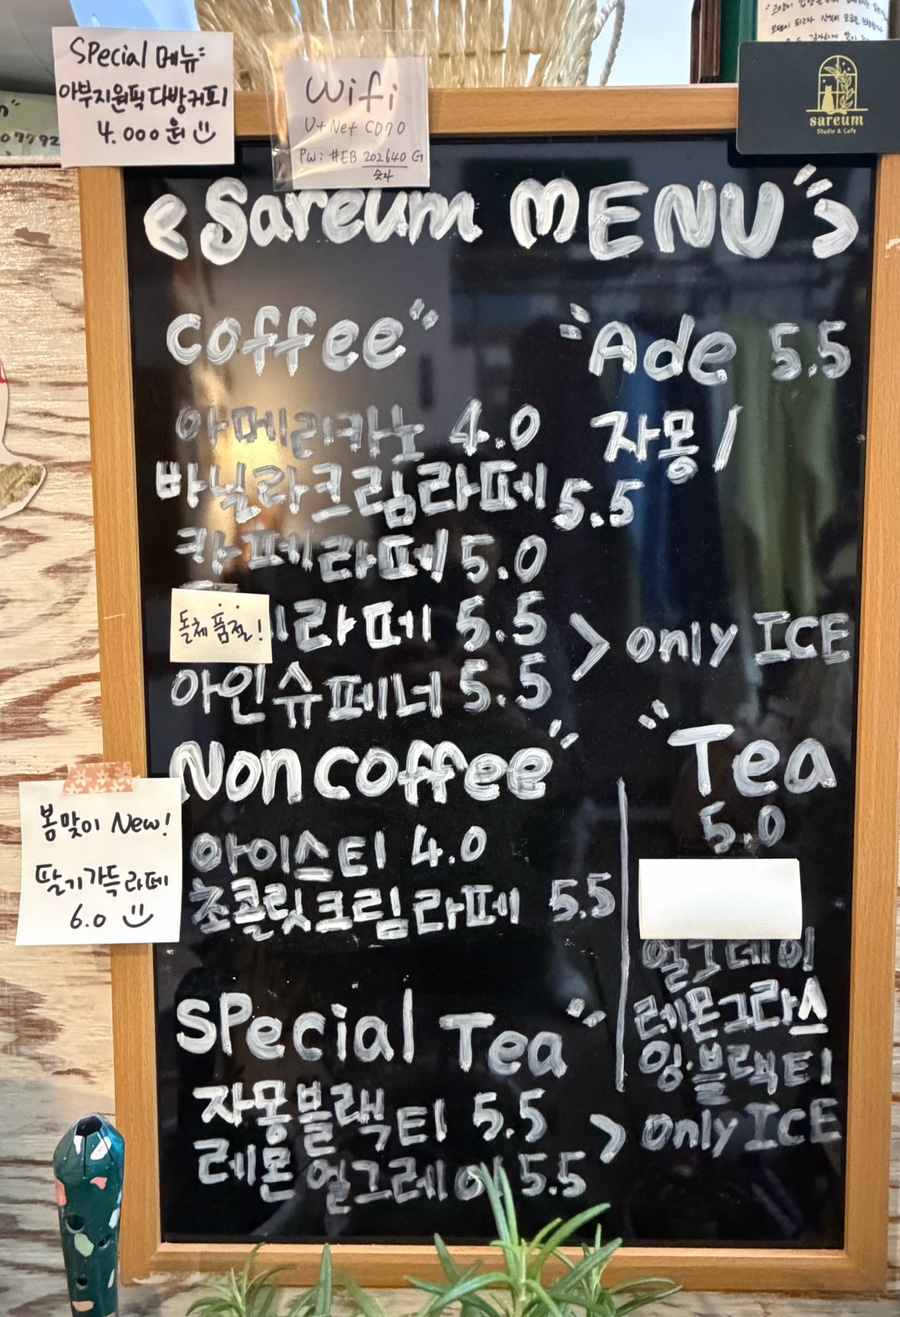 Special 메뉴
아부지원픽 다방커피
4.000원
Wifi
U+Net CD70
Pw: #EB 202640 G
숫자
sareum
Studio & Cafe
<Sareum MENU>
Coffee
아메리카노 4.0
바닐라크림라떼 5.5
카페라떼 5.0
돌체 품절!
라떼 5.5
아인슈페너 5.5
> only ICE
Ade 5.5
자몽/
Non coffee
아이스티 4.0
초콜릿크림라떼 5.5
봄맞이 New!
딸기가득라떼
6.0
Tea
5.0
얼그레이
레몬그라스
잉·블랙티
Special Tea
자몽블랙티 5.5
레몬 얼그레이 5.5
> only ICE